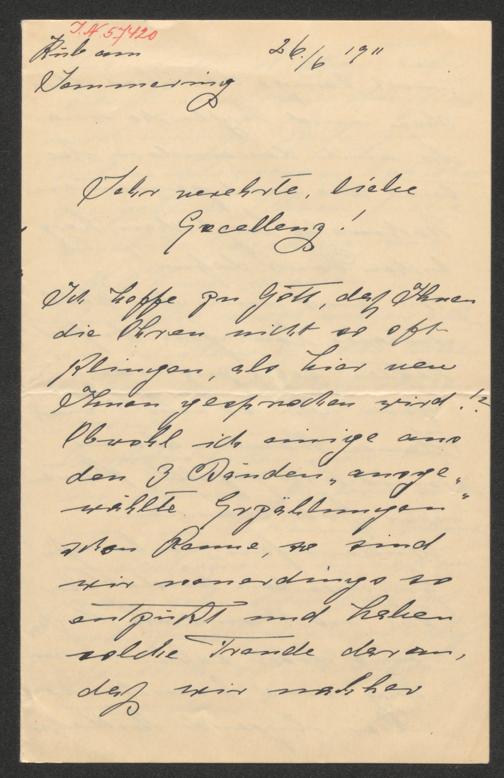 I.N 57420
Küb am 26./6 1911
Semmering
Sehr verehrte, liebe
Excellenz!
Ich hoffe zu Gott, daß Ihnen
die Ohren nicht so oft
klingen, als hier von
Ihnen gesprochen wird!?
Obwohl ich einige aus
den 3 Bänden „ausge-
wählte Erzählungen“
schon kenne, so sind
wir neuerdings so
entzückt und haben
solche Freude daran,
daß wir nachher